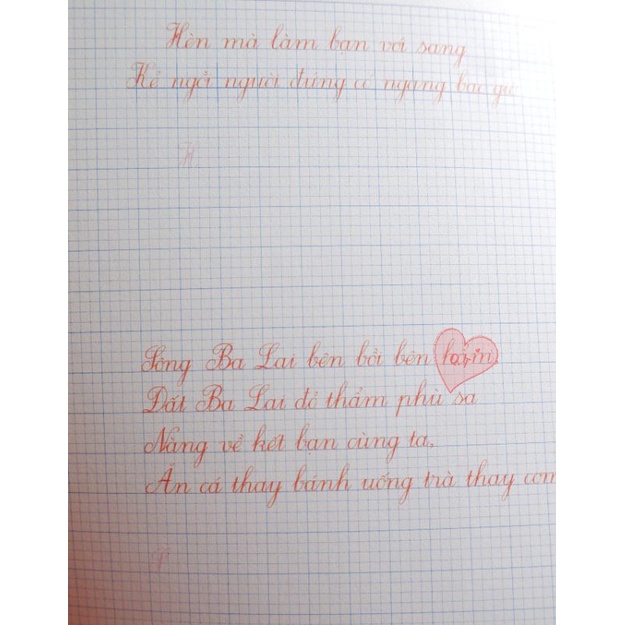 Hèn mà làm bạn với sang
Kẻ ngồi người đứng có ngang bao giờ
H
Sông Ba Lai bên bồi bên
Đất Ba Lai đỏ thắm phù sa
Nàng về kết bạn cùng ta,
Ăn cá thay bánh uống trà thay cơm